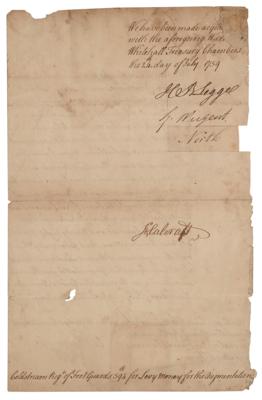 We have been made acqu
with the aforegoing this
Whitehall Treasury Chambers
the 24 day of July 1759
H B Legge
R Nugent
North
JCalcraft
Coldstream Reg.t of Foot Guards 594 for Levy Money for the Augmentation